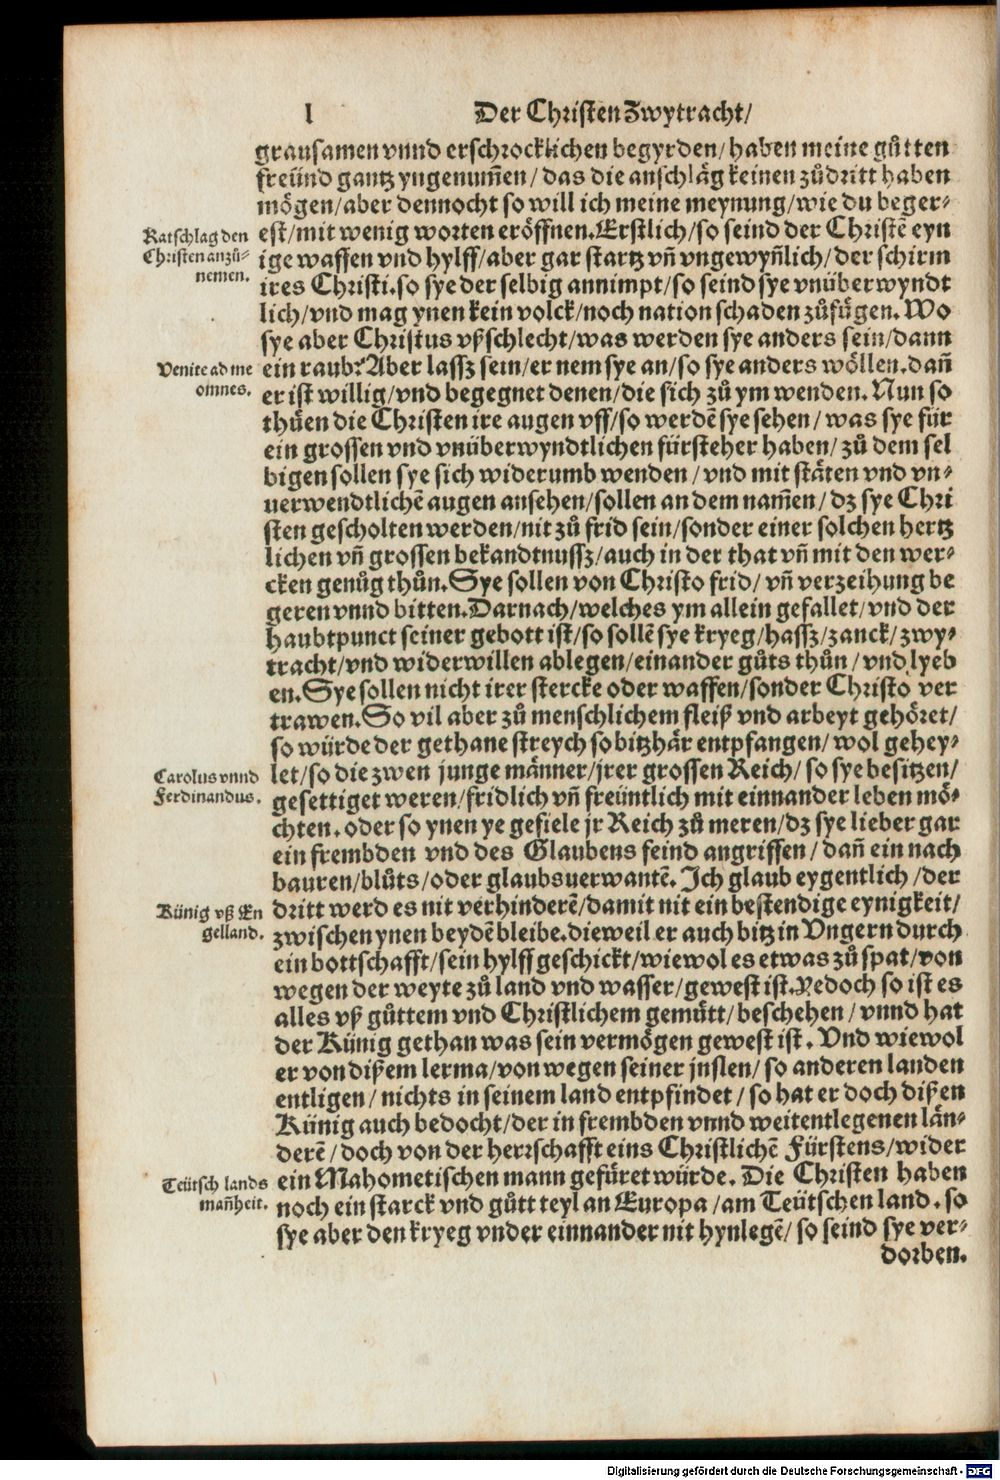 l
Der Christen Zwytracht/
grausamen vnnd erschrocklichen begyrden/ haben meine gůtten
freünd gantz yngenum̃en/ das die anschläg keinen zůdritt haben
mögen/ aber dennocht so will ich meine meynung/ wie du beger⸗
Ratschlag den
Christen anzů⸗
nemen.
est/ mit wenig worten eröffnen. Erstlich/ so seind der Christẽ eyn
ige waffen vnd hylff/ aber gar startz vñ vngewyñlich/ der schirm
ires Christi. so sye der selbig annimpt/ so seind sye vnüberwyndt
lich/ vnd mag ynen kein volck/ noch nation schaden zůfügen. Wo
sye aber Christus vßschlecht/ was werden sye anders sein/ dann
Venite ad me
omnes.
ein raub? Aber lassz sein/ er nem sye an/ so sye anders wöllen. dañ
er ist willig/ vnd begegnet denen/ die sich zů ym wenden. Nun so
thüen die Christen ire augen vff/ so werdẽ sye sehen/ was sye für
ein grossen vnd vnüberwyndtlichen fürsteher haben/ zů dem sel
bigen sollen sye sich widerumb wenden/ vnd mit stäten vnd vn⸗
uerwendtlichẽ augen ansehen/ sollen an dem nam̃en/ dz sye Chri
sten gescholten werden/ nit zů frid sein/ sonder einer solchen hertz
lichen vñ grossen bekandtnussz/ auch in der that vñ mit den wer⸗
cken genůg thůn. Sye sollen von Christo frid/ vñ verzeihung be
geren vnnd bitten. Darnach/ welches ym allein gefallet/ vnd der
haubtpunct seiner gebott ist/ so sollẽ sye kryeg/ hassz/ zanck/ zwy⸗
tracht/ vnd widerwillen ablegen/ einander gůts thůn/ vnd lyeb
en. Sye sollen nicht irer stercke oder waffen/ sonder Christo ver
trawen. So vil aber zů menschlichem fleiß vnd arbeyt gehöret/
so würde der gethane streych so bitzhär entpfangen/ wol gehey⸗
Carolus vnnd
Ferdinandus.
let/ so die zwen junge männer/ jrer grossen Reich/ so sye besitzen/
gesettiget weren/ fridlich vñ freüntlich mit einnander leben mö⸗
chten. oder so ynen ye gefiele jr Reich zů meren/ dz sye lieber gar
ein frembden vnd des Glaubens feind angriffen/ dañ ein nach
bauren/ blůts/ oder glaubsuerwantẽ. Ich glaub eygentlich/ der
Künig vß En
gelland.
dritt werd es nit verhinderẽ/ damit nit ein bestendige eynigkeit/
zwischen ynen beydẽ bleibe. dieweil er auch bitz in Vngern durch
ein bottschafft/ sein hylff geschickt/ wiewol es etwas zů spat/ von
wegen der weyte zů land vnd wasser/ gewest ist. Yedoch so ist es
alles vß gůttem vnd Christlichem gemütt/ beschehen/ vnnd hat
der Künig gethan was sein vermögen gewest ist. Vnd wiewol
er von dißem lerma/ von wegen seiner jnslen/ so anderen landen
entligen/ nichts in seinem land entpfindet/ so hat er doch dißen
Künig auch bedocht/ der in frembden vnnd weitentlegenen län⸗
derẽ/ doch von der herrschafft eins Christlichẽ Fürstens/ wider
Teütsch lands
mañheit.
ein Mahometischen mann gefüret würde. Die Christen haben
noch ein starck vnd gůtt teyl an Europa/ am Teütschen land. so
sye aber den kryeg vnder einnander nit hynlegẽ/ so seind sye ver⸗
dorben.
Digitalisierung gefördert durch die Deutsche Forschungsgemeinschaft - DFG